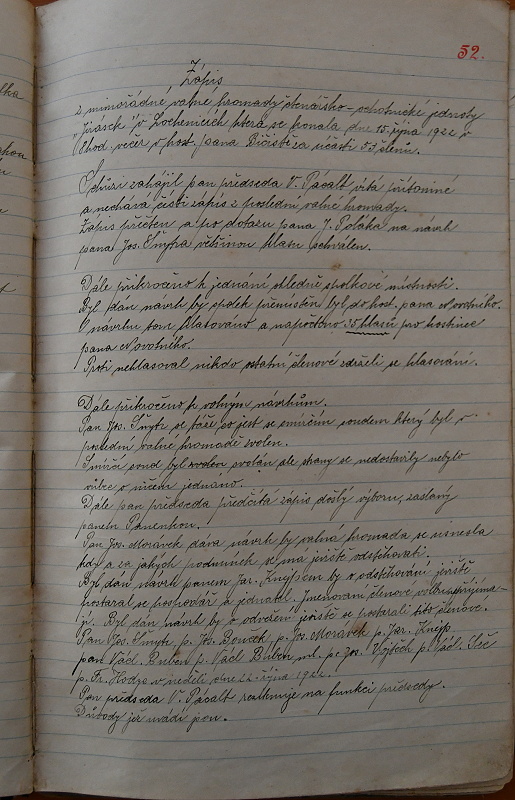 52.
Zápis
z mimořádné valné hromady čtenářsko-ochotnické jednoty
"Jirásek" v Lochenicích která se konala dne 15. října 1922 v
8 hod večer v host. pana za účasti 53 členů.
Schůzi zahájil pan předseda V. Pácalt vítá přítomné
a nechává čísti zápis z poslední valné hromady.
Zápis přečten a po dotazu pana J. Poláka na návrh
pana Jos. Šmyha většinou hlasů schválen.
Dále přikročeno k jednání ohledně spolkové místnosti.
Byl dán návrh by spolek přemístěn byl do host. pana Novotného.
O návrhu tom hlasováno a napočteno 35 hlasů pro hostinec
pana Novotného.
Proti nehlasoval nikdo ostatní členové zdrželi se hlasování.
Dále přikročeno k volným návrhům.
Pan Jos. Šmyh se táže co jest se smírčím soudem který byl v
poslední valné hromadě zvolen.
Smírčí soud byl zvolen svolán ale strany se nedostavily nebylo
vůbec o ničem jednáno.
Dále pan předseda předčítá zápis došlý výboru, zaslaný
panem Panenkou.
Pan Jos. Morávek dává návrh by valná hromada se usnesla
kdy a za jakých podmínek se má jeviště odstěhovati.
Byl dán návrh panem Jar. Knejpem by o odstěhování jeviště
postaral se hospodář a jednatel. Jmenovaní členové volbu
Byl dán návrh by o odvežení jeviště se postarali tito členové.
Pan Jos. Šmyh p. Jos. p. Jos. Morávek p. Jar. Knejp
pan Václ. Buben p. Václ. Buben ml. p. Jos. Vojtěch p. Václ.
p. Fr. v neděli dne 22. října 1922.
Pan předseda V. Pácalt resignuje na funkci předsedy.
Důvody jež uvádí jsou.